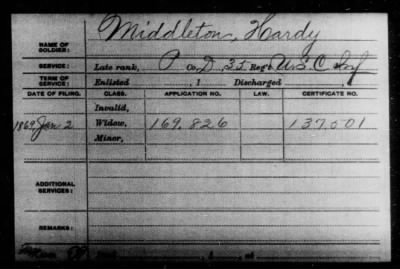 NAME OF SOLDIER: Middleton, Hardy
SERVICE: Late rank, P Co. D, 35 Reg't U.S.C. Inf
TERM OF SERVICE: Enlisted , 1 Discharged
DATE OF FILING. CLASS. APPLICATION NO. LAW. CERTIFICATE NO.
Invalid,
1869 Jan 2 Widow, 169.826 137.001
Minor,
ADDITIONAL SERVICES:
REMARKS: